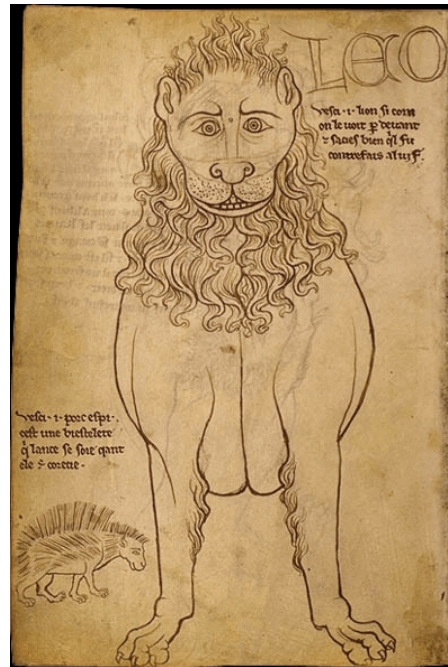 LEO
Vesci .i. lion si com
on le voit p devant
⁊ sacies bien ql fu
contrefais al vif.
Vesci .i. porc espi .
cest une biestelete
q̓ lance se soie qant
ele ÷ corecie .